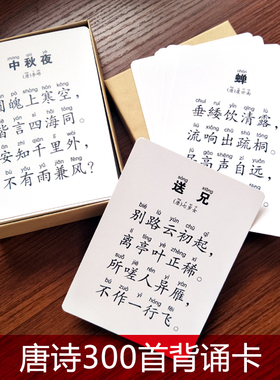 zhōng qiū yè
中秋夜
pò shàng hán kōng
魄上寒空,
皆言四海同。
安知千里外,
不有雨兼风?
chán
蝉
chuí ruí yǐn qīng lù
垂緌饮清露,
liú xiǎng chū shū tóng
流响出疏桐。
高声自远,
sòng xiōng
送兄
bié lù yún chū qǐ
别路云初起,
lí tíng yè zhèng xī
离亭叶正稀。
suǒ jiē rén yì yàn
所嗟人异雁,
bú zuò yì háng fēi
不作一行飞。
唐诗300首背诵卡